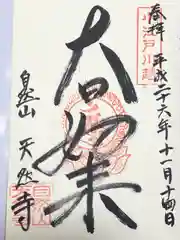 奉拝
平成二十六年十一月十四日
大日如来
自然山
天然寺